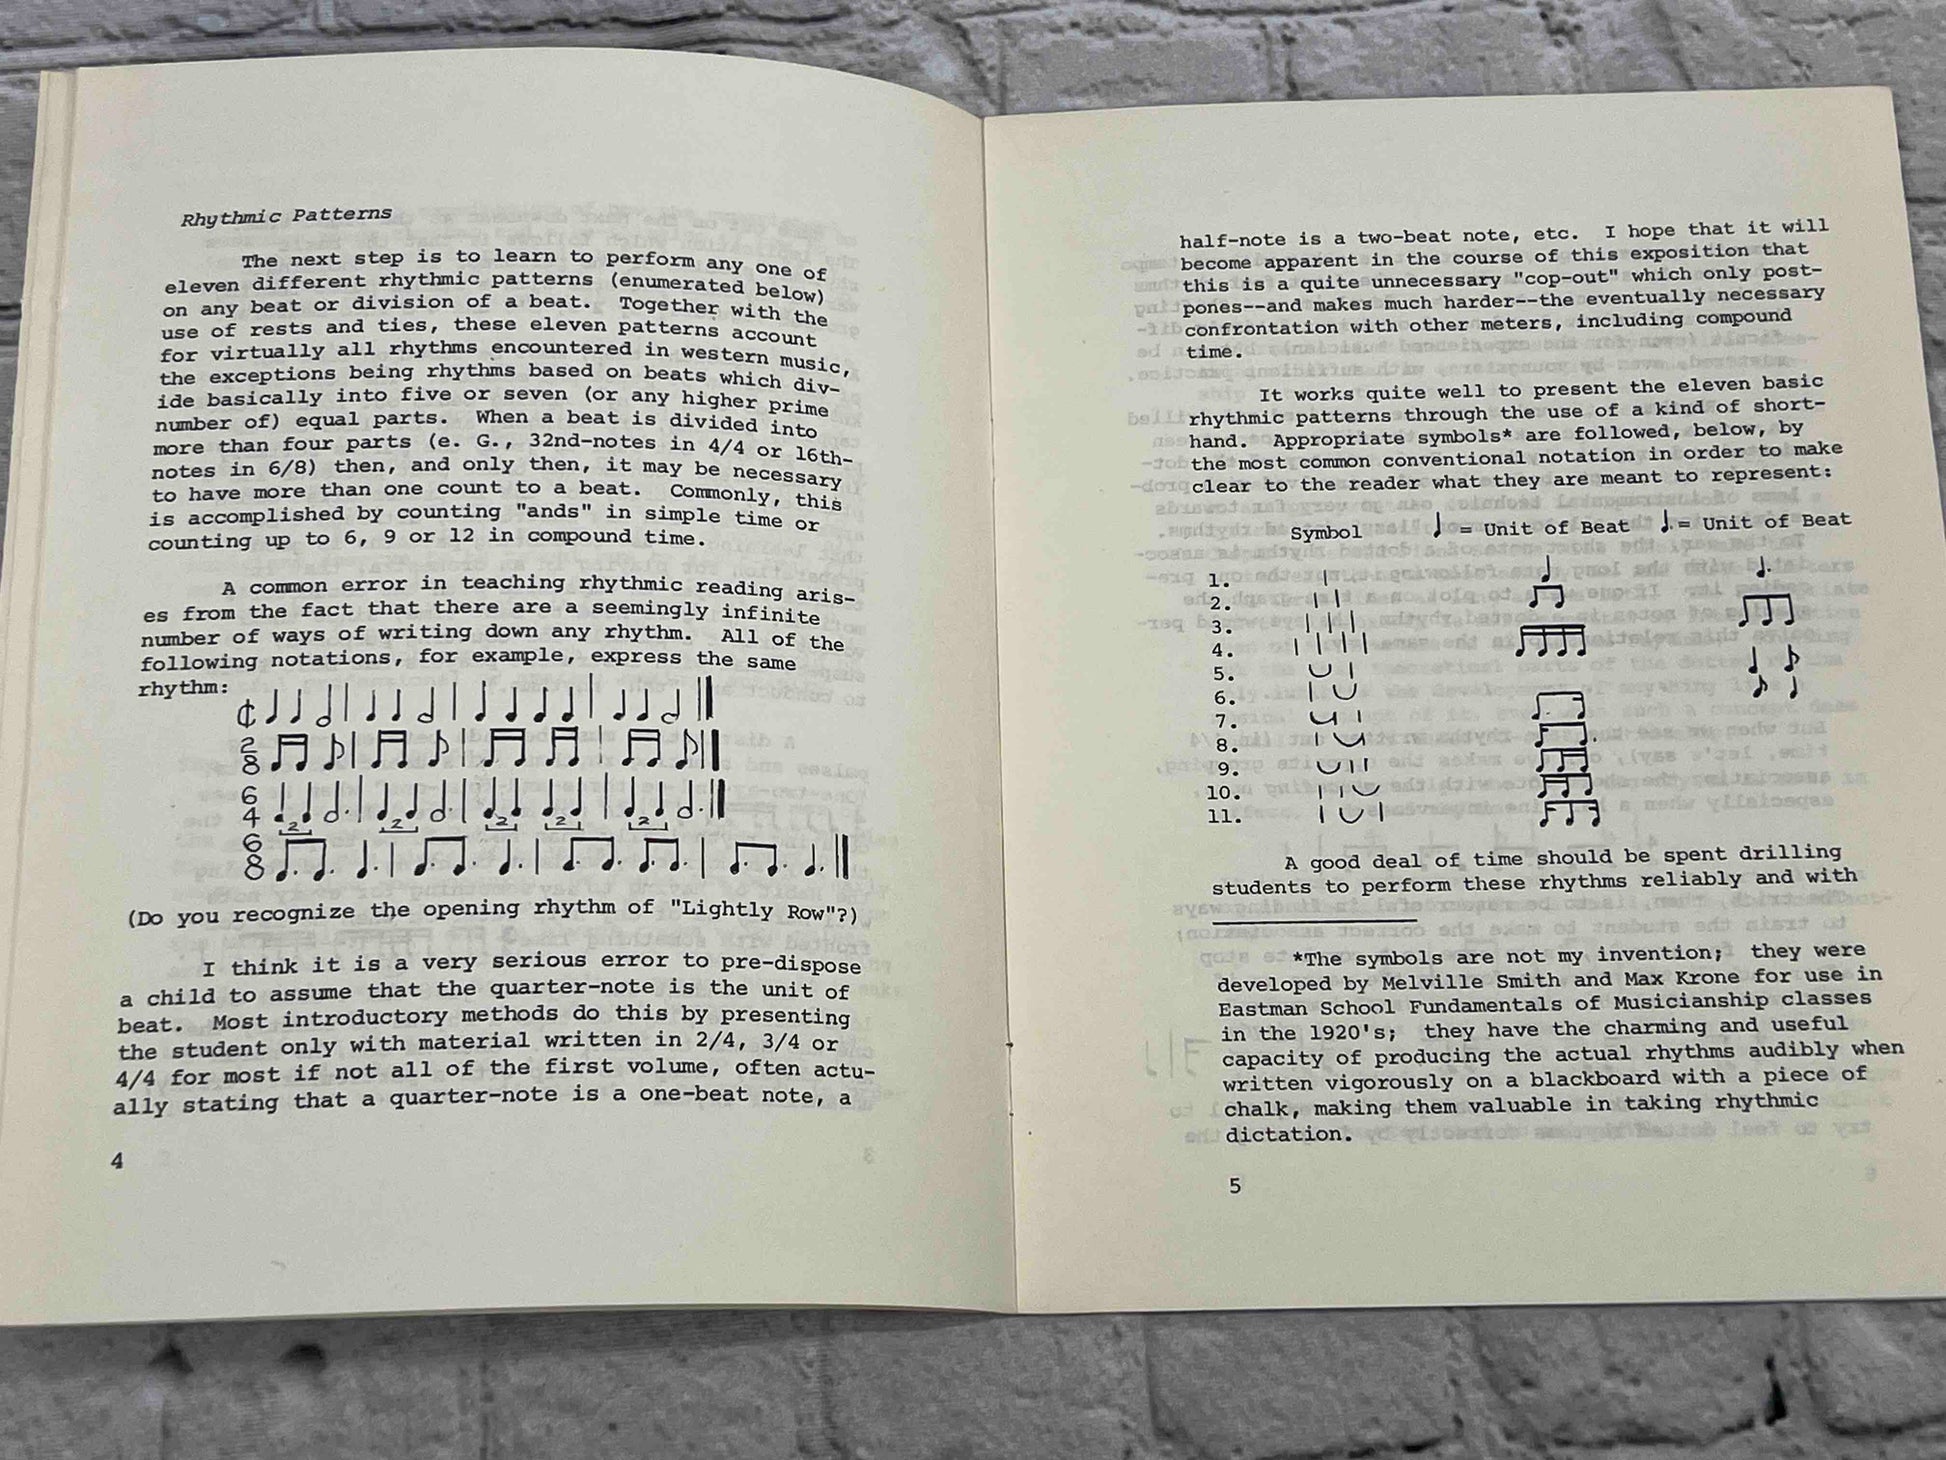 Rhythmic Patterns
The next step is to learn to perform any one of
eleven different rhythmic patterns (enumerated below)
on any beat or division of a beat. Together with the
use of rests and ties, these eleven patterns account
for virtually all rhythms encountered in western music,
the exceptions being rhythms based on beats which div-
ide basically into five or seven (or any higher prime
number of) equal parts. When a beat is divided into
more than four parts (e. G., 32nd-notes in 4/4 or 16th-
notes in 6/8) then, and only then, it may be necessary
to have more than one count to a beat. Commonly, this
is accomplished by counting "ands" in simple time or
counting up to 6, 9 or 12 in compound time.
A common error in teaching rhythmic reading aris-
es from the fact that there are a seemingly infinite
number of ways of writing down any rhythm. All of the
following notations, for example, express the same
rhythm:
2
8
6
4
2 2 2 2 2
6
8
(Do you recognize the opening rhythm of "Lightly Row"?)
I think it is a very serious error to pre-dispose
a child to assume that the quarter-note is the unit of
beat. Most introductory methods do this by presenting
the student only with material written in 2/4, 3/4 or
4/4 for most if not all of the first volume, often actu-
ally stating that a quarter-note is a one-beat note, a
4
half-note is a two-beat note, etc. I hope that it will
become apparent in the course of this exposition that
this is a quite unnecessary "cop-out" which only post-
pones--and makes much harder--the eventually necessary
confrontation with other meters, including compound
time.
It works quite well to present the eleven basic
rhythmic patterns through the use of a kind of short-
hand. Appropriate symbols* are followed, below, by
the most common conventional notation in order to make
clear to the reader what they are meant to represent:
Symbol ♩ = Unit of Beat ♩. = Unit of Beat
1.
2.
3.
4.
5.
6.
7.
8.
9.
10.
11.
A good deal of time should be spent drilling
students to perform these rhythms reliably and with
*The symbols are not my invention; they were
developed by Melville Smith and Max Krone for use in
Eastman School Fundamentals of Musicianship classes
in the 1920's; they have the charming and useful
capacity of producing the actual rhythms audibly when
written vigorously on a blackboard with a piece of
chalk, making them valuable in taking rhythmic
dictation.
5